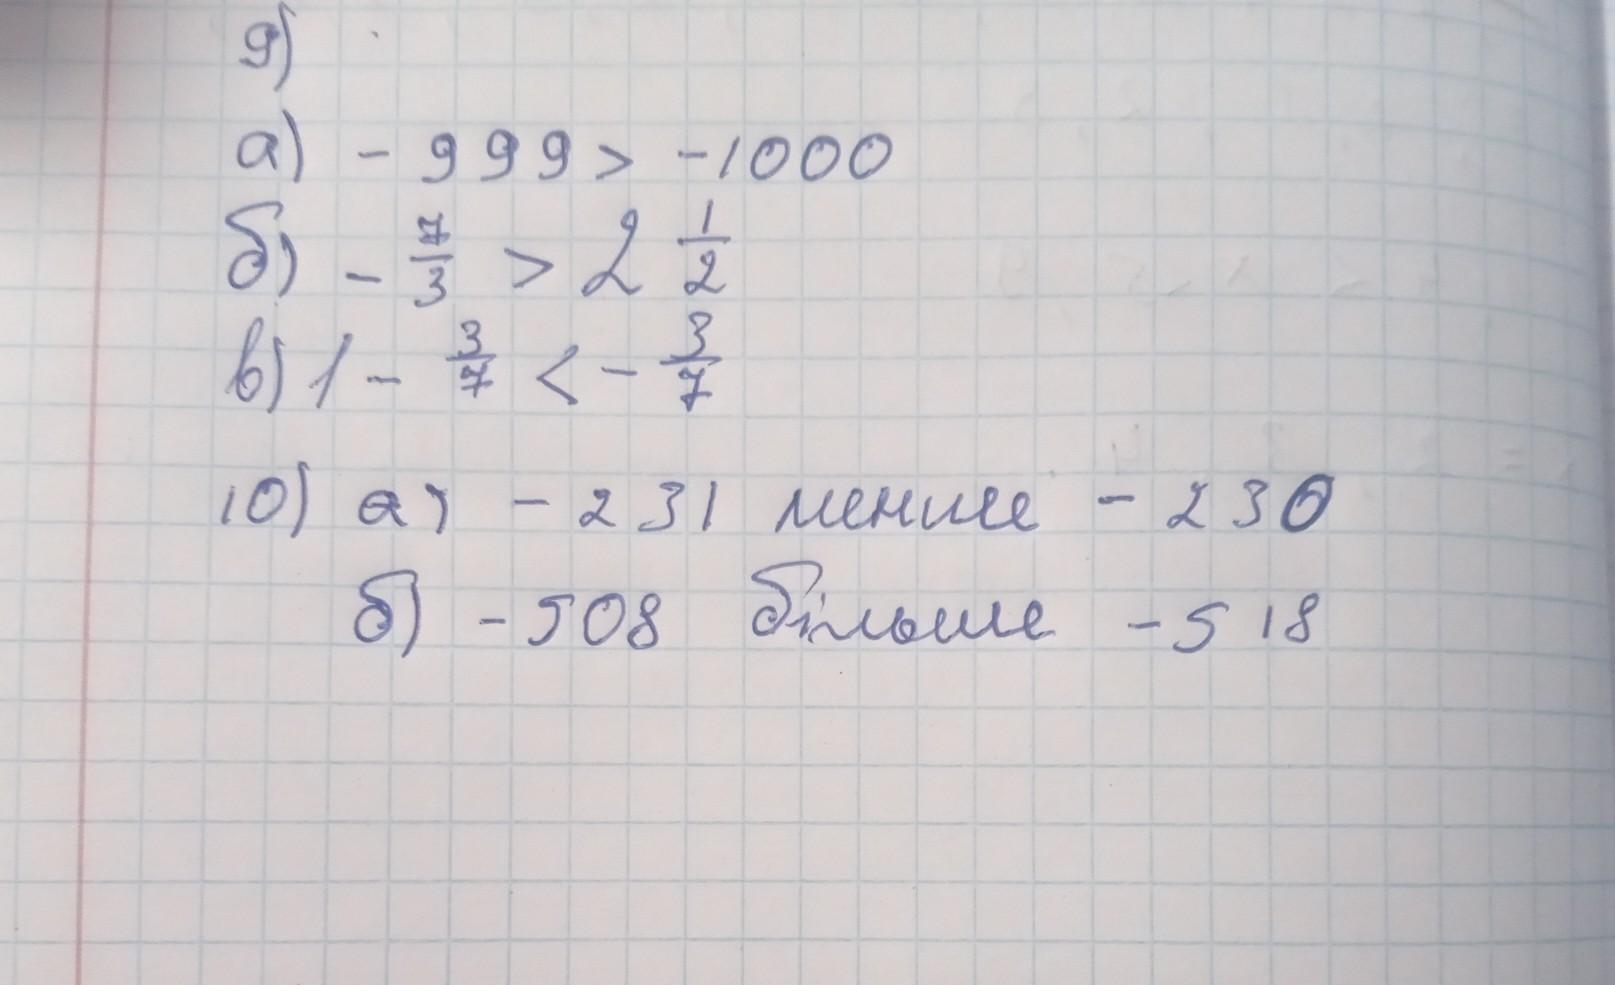 9)
а) - 999 > -1000
б) - 7/3 > 2 1/2
в) 1 - 3/7 < - 3/7
10) а) - 231 менше - 230
б) - 508 більше - 518